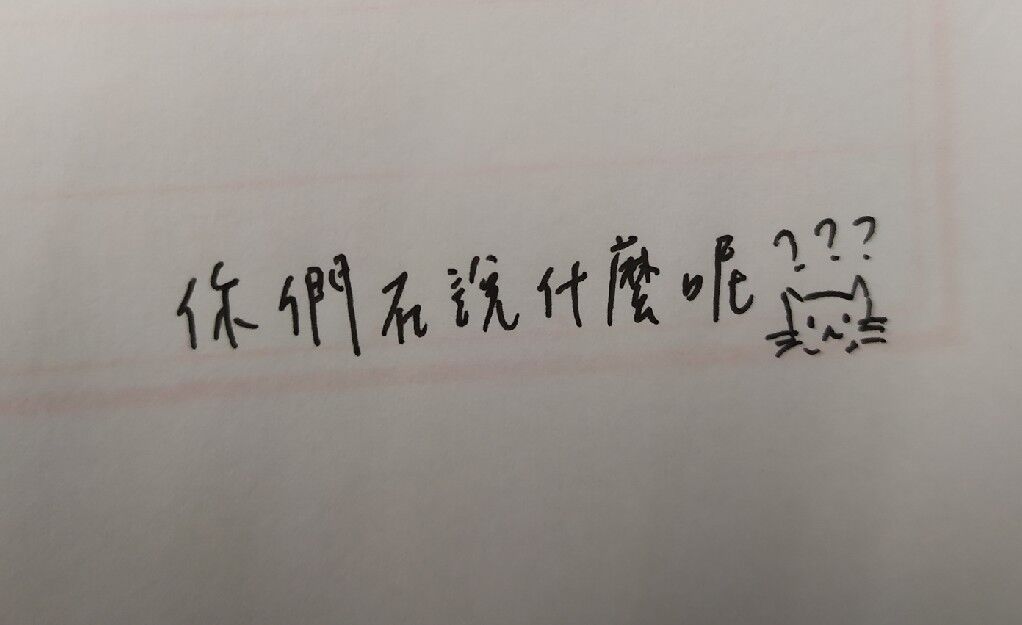 你們在說什麼呢???